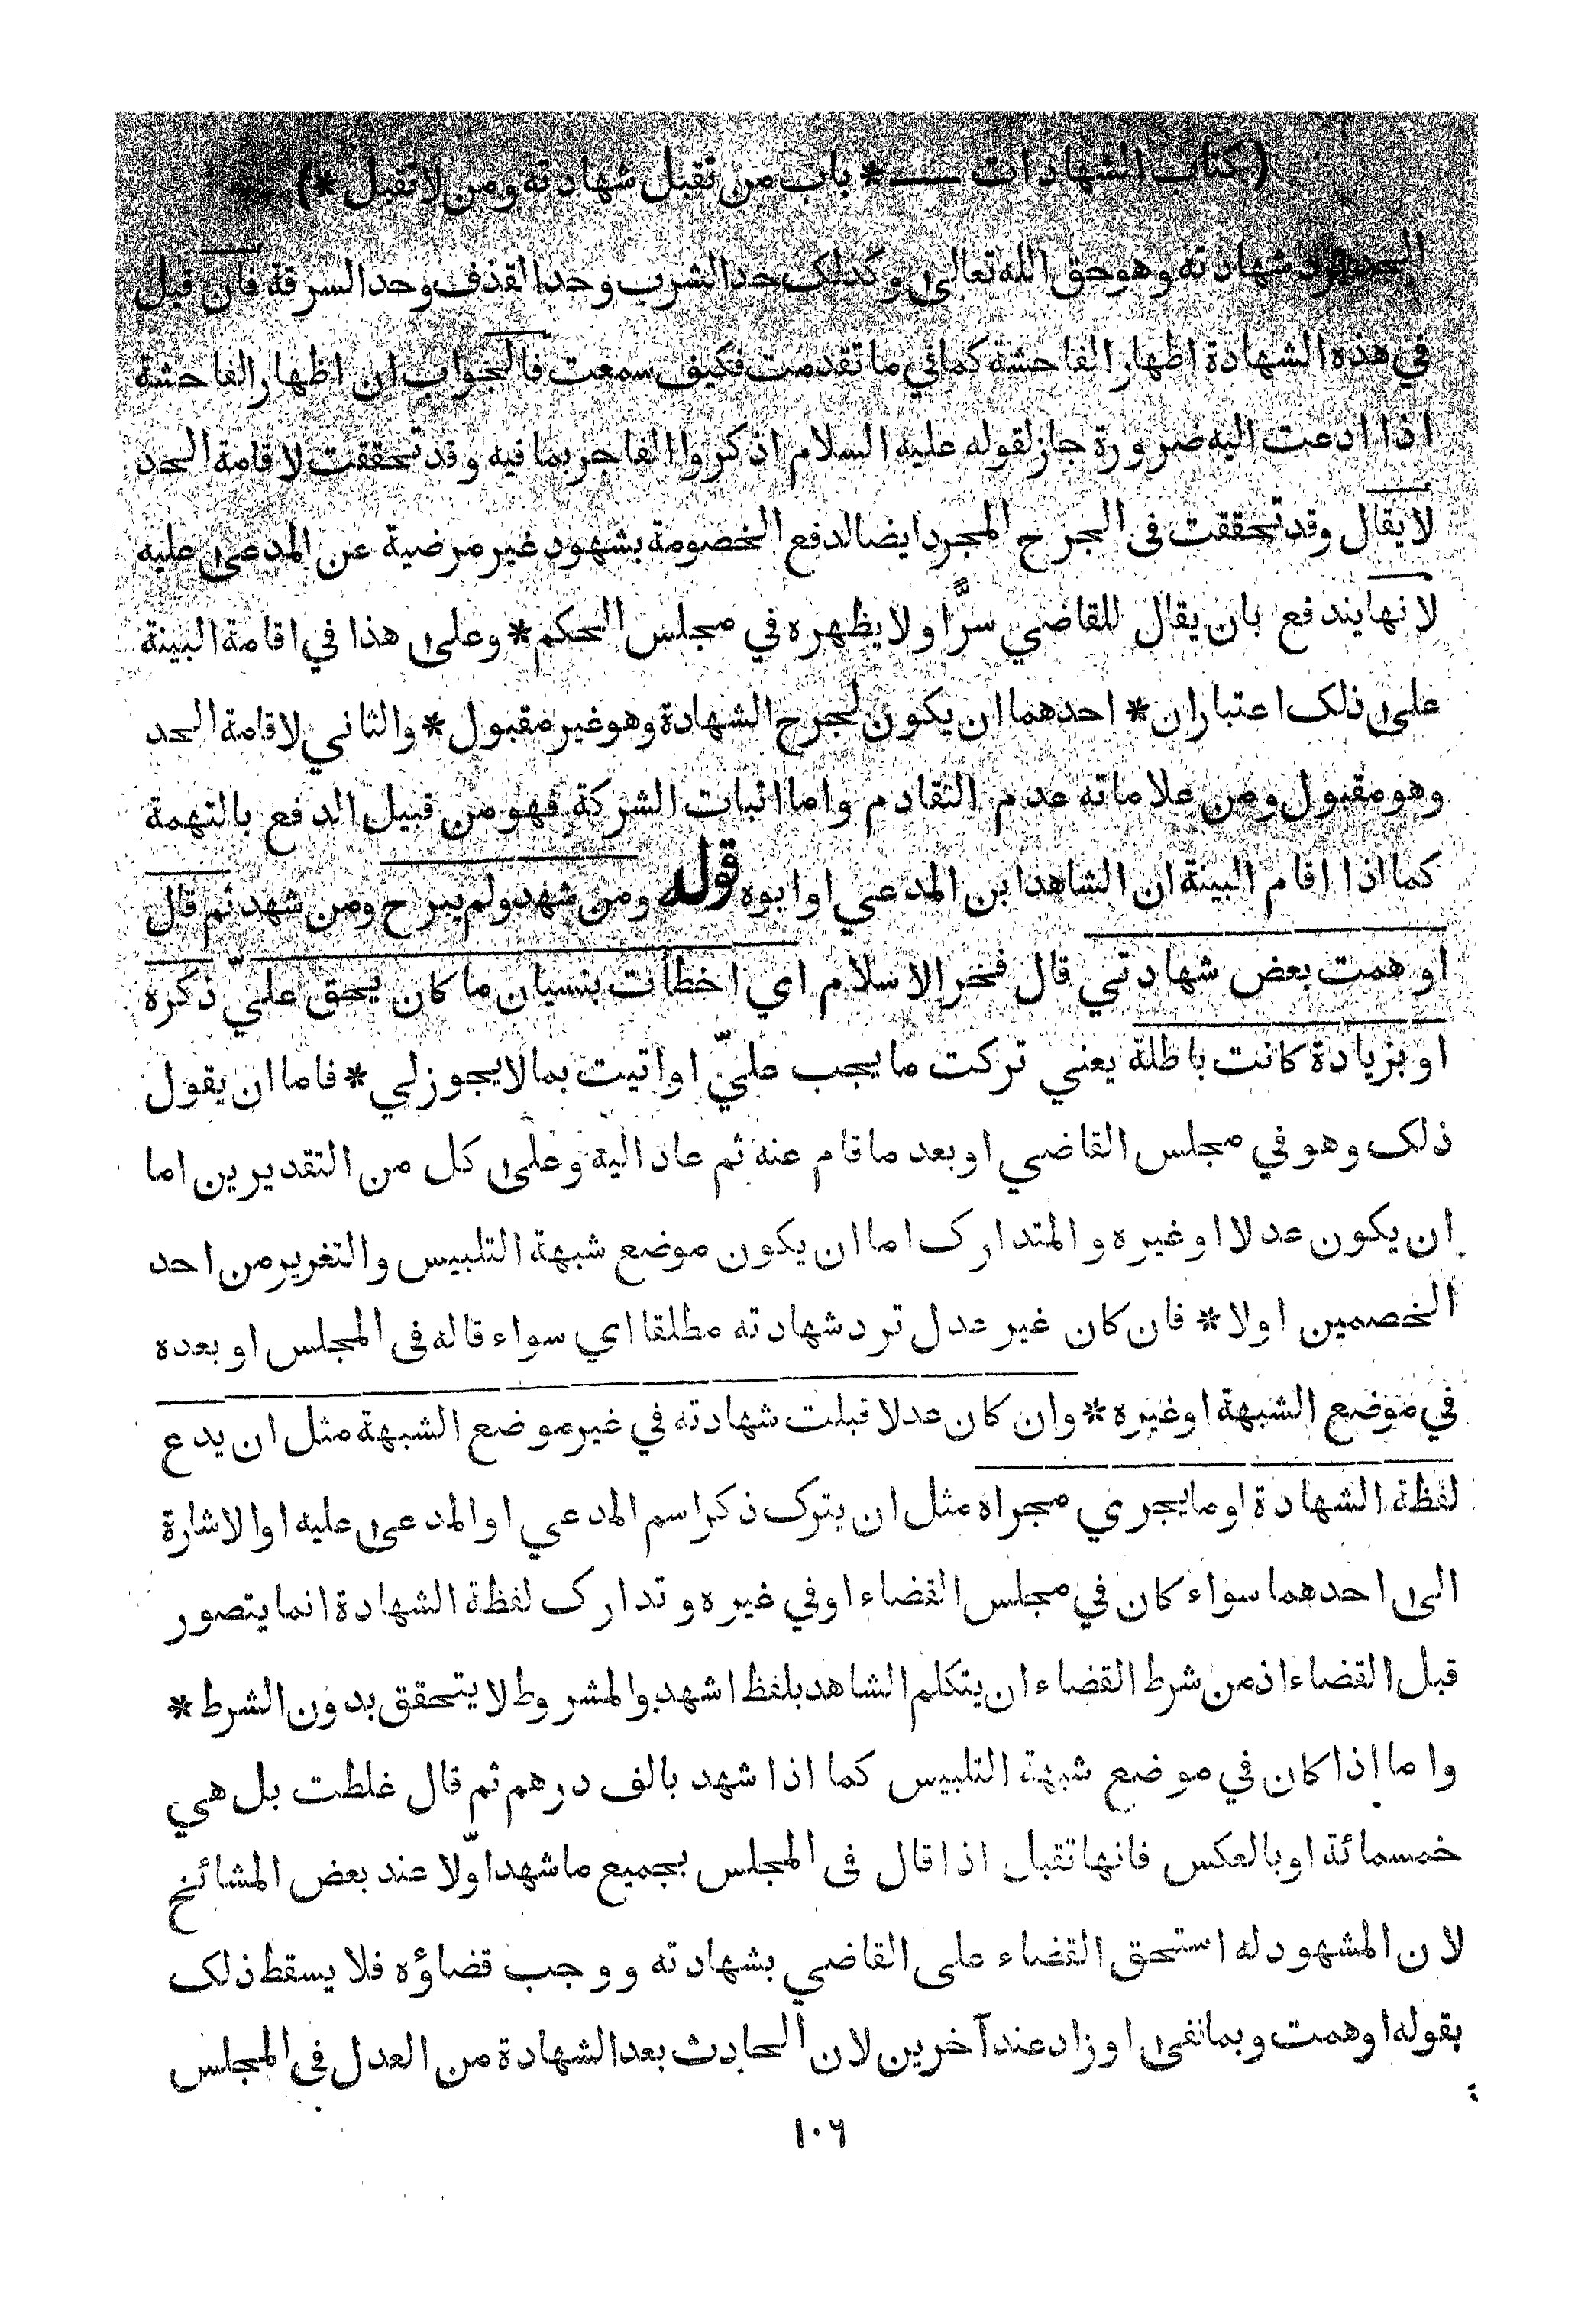 ( كتاب الشهادات ـــــ * باب من تقبل شهادته ومن لا تقبل * )
الحد فترد شهادته وهو حق الله تعالى وكذلك حد الشرب وحد القذف وحد السرقة فان قيل
في هذه الشهادة اظهار الفاحشة كما في ما تقدمت فكيف سمعت فالجواب ان اظهار الفاحشة
اذا ادعت اليه ضرورة جاز لقوله عليه السلام اذكروا الفاجر بما فيه وقد تحققت لاقامة الحد
لا يقال وقد تحققت في الجرح المجرد ايضا لدفع الخصومة بشهود غير مرضية عن المدعى عليه
لانها يندفع بان يقال للقاضي سرًّا ولا يظهره في مجلس الحكم * وعلى هذا في اقامة البينة
على ذلك اعتباران * احدهما ان يكون لجرح الشهادة وهو غير مقبول * والثاني لاقامة الحد
وهو مقبول ومن علاماته عدم التقادم واما اثبات الشركة فهو من قبيل الدفع بالتهمة
كما اذا اقام البينة ان الشاهد ابن المدعي او ابوه قوله ومن شهد ولم يبرح ومن شهد ثم قال
اوهمت بعض شهادتي قال فخر الاسلام اي اخطأت بنسيان ما كان يحق عليّ ذكره
او بزيادة كانت باطلة يعني تركت ما يجب عليّ او اتيت بما لا يجوز لي * فاما ان يقول
ذلك وهو في مجلس القاضي او بعد ما قام عنه ثم عاد اليه وعلى كل من التقديرين اما
ان يكون عدلا او غيره والمتدارك اما ان يكون موضع شبهة التلبيس والتغرير من احد
الخصمين اولا * فان كان غير عدل ترد شهادته مطلقا اي سواء قاله في المجلس او بعده
في موضع الشبهة او غيره * وان كان عدلا قبلت شهادته في غير موضع الشبهة مثل ان يدع
لفظة الشهادة او ما يجري مجراه مثل ان يترك ذكر اسم المدعي او المدعى عليه او الاشارة
الى احدهما سواء كان في مجلس القضاء او في غيره وتدارك لفظة الشهادة انما يتصور
قبل القضاء اذ من شرط القضاء ان يتكلم الشاهد بلفظ اشهد والمشروط لا يتحقق بدون الشرط *
واما اذا كان في موضع شبهة التلبيس كما اذا شهد بالف درهم ثم قال غلطت بل هي
خمسمائة او بالعكس فانها تقبل اذا قال في المجلس بجميع ما شهد اوّلا عند بعض المشائخ
لان المشهود له استحق القضاء على القاضي بشهادته ووجب قضاؤه فلا يسقط ذلك
بقوله اوهمت وبما نفى او زاد عند آخرين لان الحادث بعد الشهادة من العدل في المجلس
١٠٦